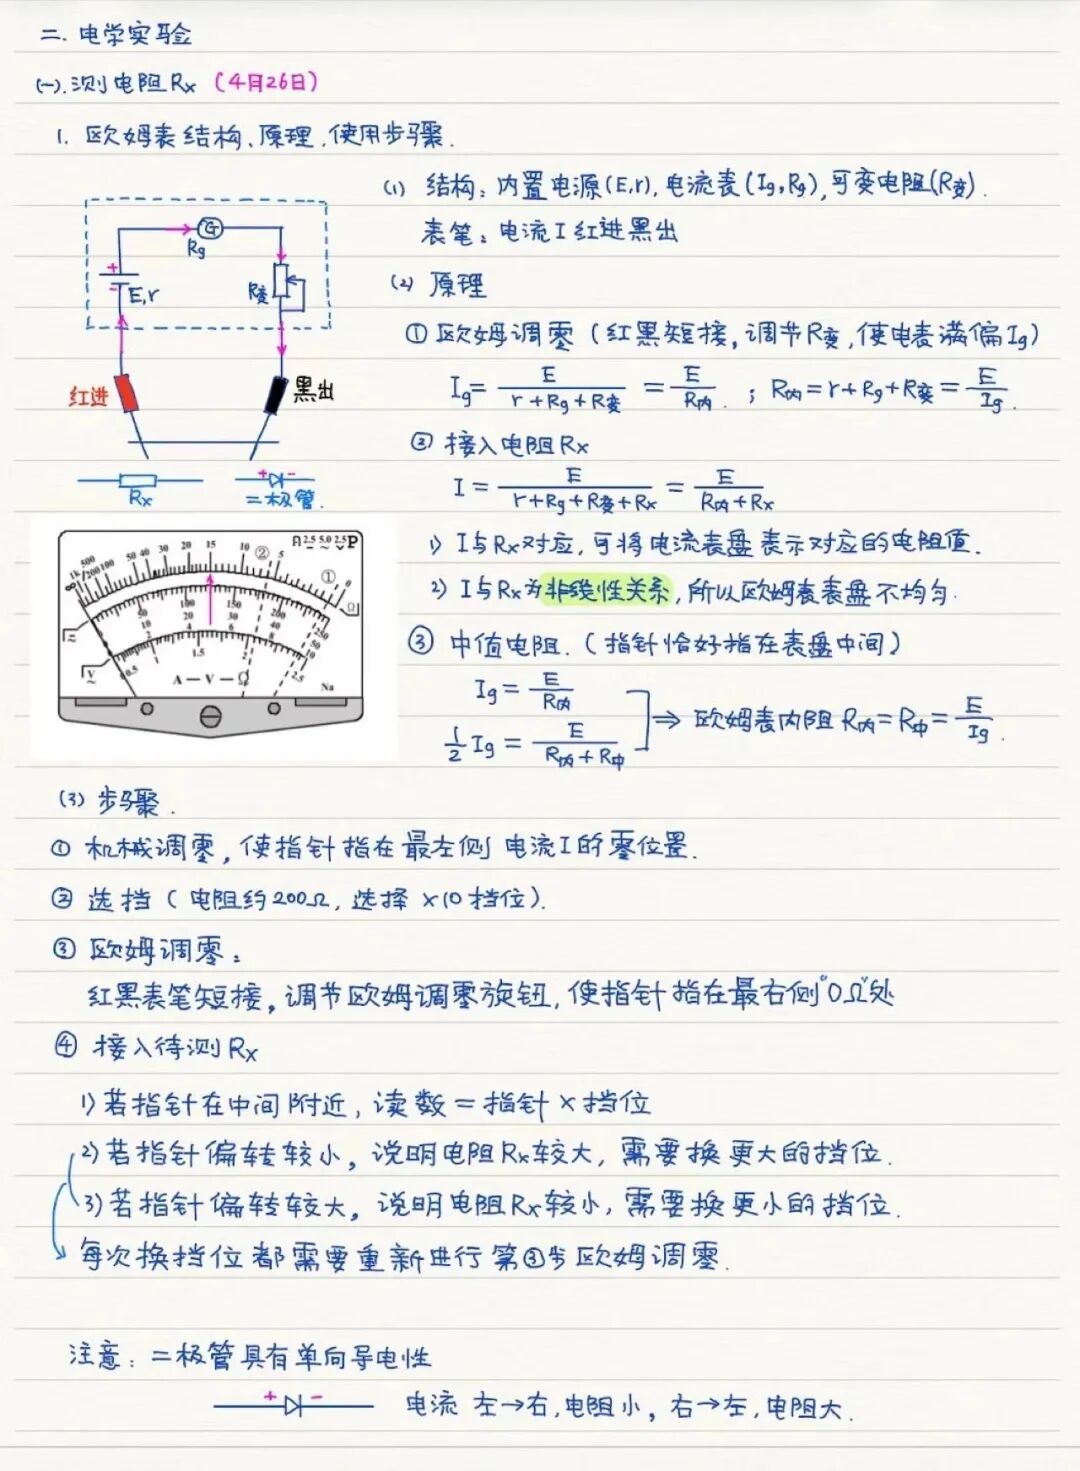 二. 电学实验
(一). 测电阻Rx (4月26日)
1. 欧姆表结构、原理、使用步骤.
(1) 结构: 内置电源(E,r), 电流表(Ig,Rg), 可变电阻(R变).
表笔: 电流I红进黑出
G
Rg
+
-
E,r
R变
红进
黑出
Rx
+ -
二极管.
(2) 原理
① 欧姆调零 (红黑短接, 调节R变, 使电表满偏Ig)
Ig = E/(r+Rg+R变) = E/R内. ; R内 = r+Rg+R变 = E/Ig.
② 接入电阻Rx
I = E/(r+Rg+R变+Rx) = E/(R内+Rx)
1) I与Rx对应, 可将电流表盘表示对应的电阻值.
2) I与Rx为非线性关系, 所以欧姆表表盘不均匀.
③ 中值电阻. (指针恰好指在表盘中间)
Ig = E/R内
1/2 Ig = E/(R内+R中)
⇒ 欧姆表内阻 R内=R中= E/Ig.
2.5 5.0 2.5 P
∞ 1k 500 200 100 50 40 30 20 15 10 ② 5 ① 0 Ω
0 50 100 150 200 250
10 20 30 40 50
2 4 6 8 10
V
0.5 1.5 2 2.5
A — V — Ω
Na
(3) 步骤.
① 机械调零, 使指针指在最左侧 电流I的零位置.
② 选挡 (电阻约200Ω, 选择 ×10挡位).
③ 欧姆调零:
红黑表笔短接, 调节欧姆调零旋钮, 使指针指在最右侧"0Ω"处
④ 接入待测Rx
1) 若指针在中间附近, 读数 = 指针×挡位
2) 若指针偏转较小, 说明电阻Rx较大, 需要换更大的挡位.
3) 若指针偏转较大, 说明电阻Rx较小, 需要换更小的挡位.
每次换挡位都需要重新进行第③步欧姆调零.
注意: 二极管具有单向导电性
+ - 电流 左→右, 电阻小, 右→左, 电阻大.